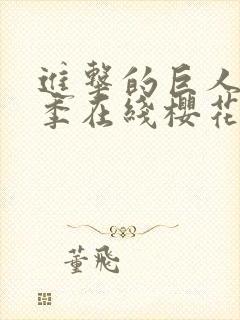 進擊的巨人
季在綫櫻花
董飛